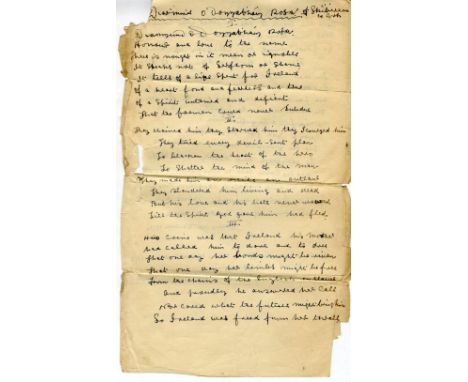 Diarmuid O'Donnabháin Rosa of Skibbereen
Co Cork
I.
Diarmuid O'Donnabháin Rosa
Honour and love to the name
There is nought in it mean or ignoble
It speaks not of or shame
It tells of a life spent for Ireland
Of a heart fond and fearless and true
Of a spirit untamed and defiant
That the foeman could never subdue
II.
They chained him they starved him they scourged him
They tried every devil-sent plan
To blacken the heart of the hero
To shatter the mind of the man
They made him an outlaw
They slandered him living and dead
But his love and his hate never
Till the spirit God gave him had fled
III.
His crime was that Ireland his mother
had called him to dare and to die
That one day her bonds might be riven
That one day her limbs might be free
from the chains of the English
And proudly he answered her call
Nor cared what the future might bring him
So Ireland was freed from her thrall